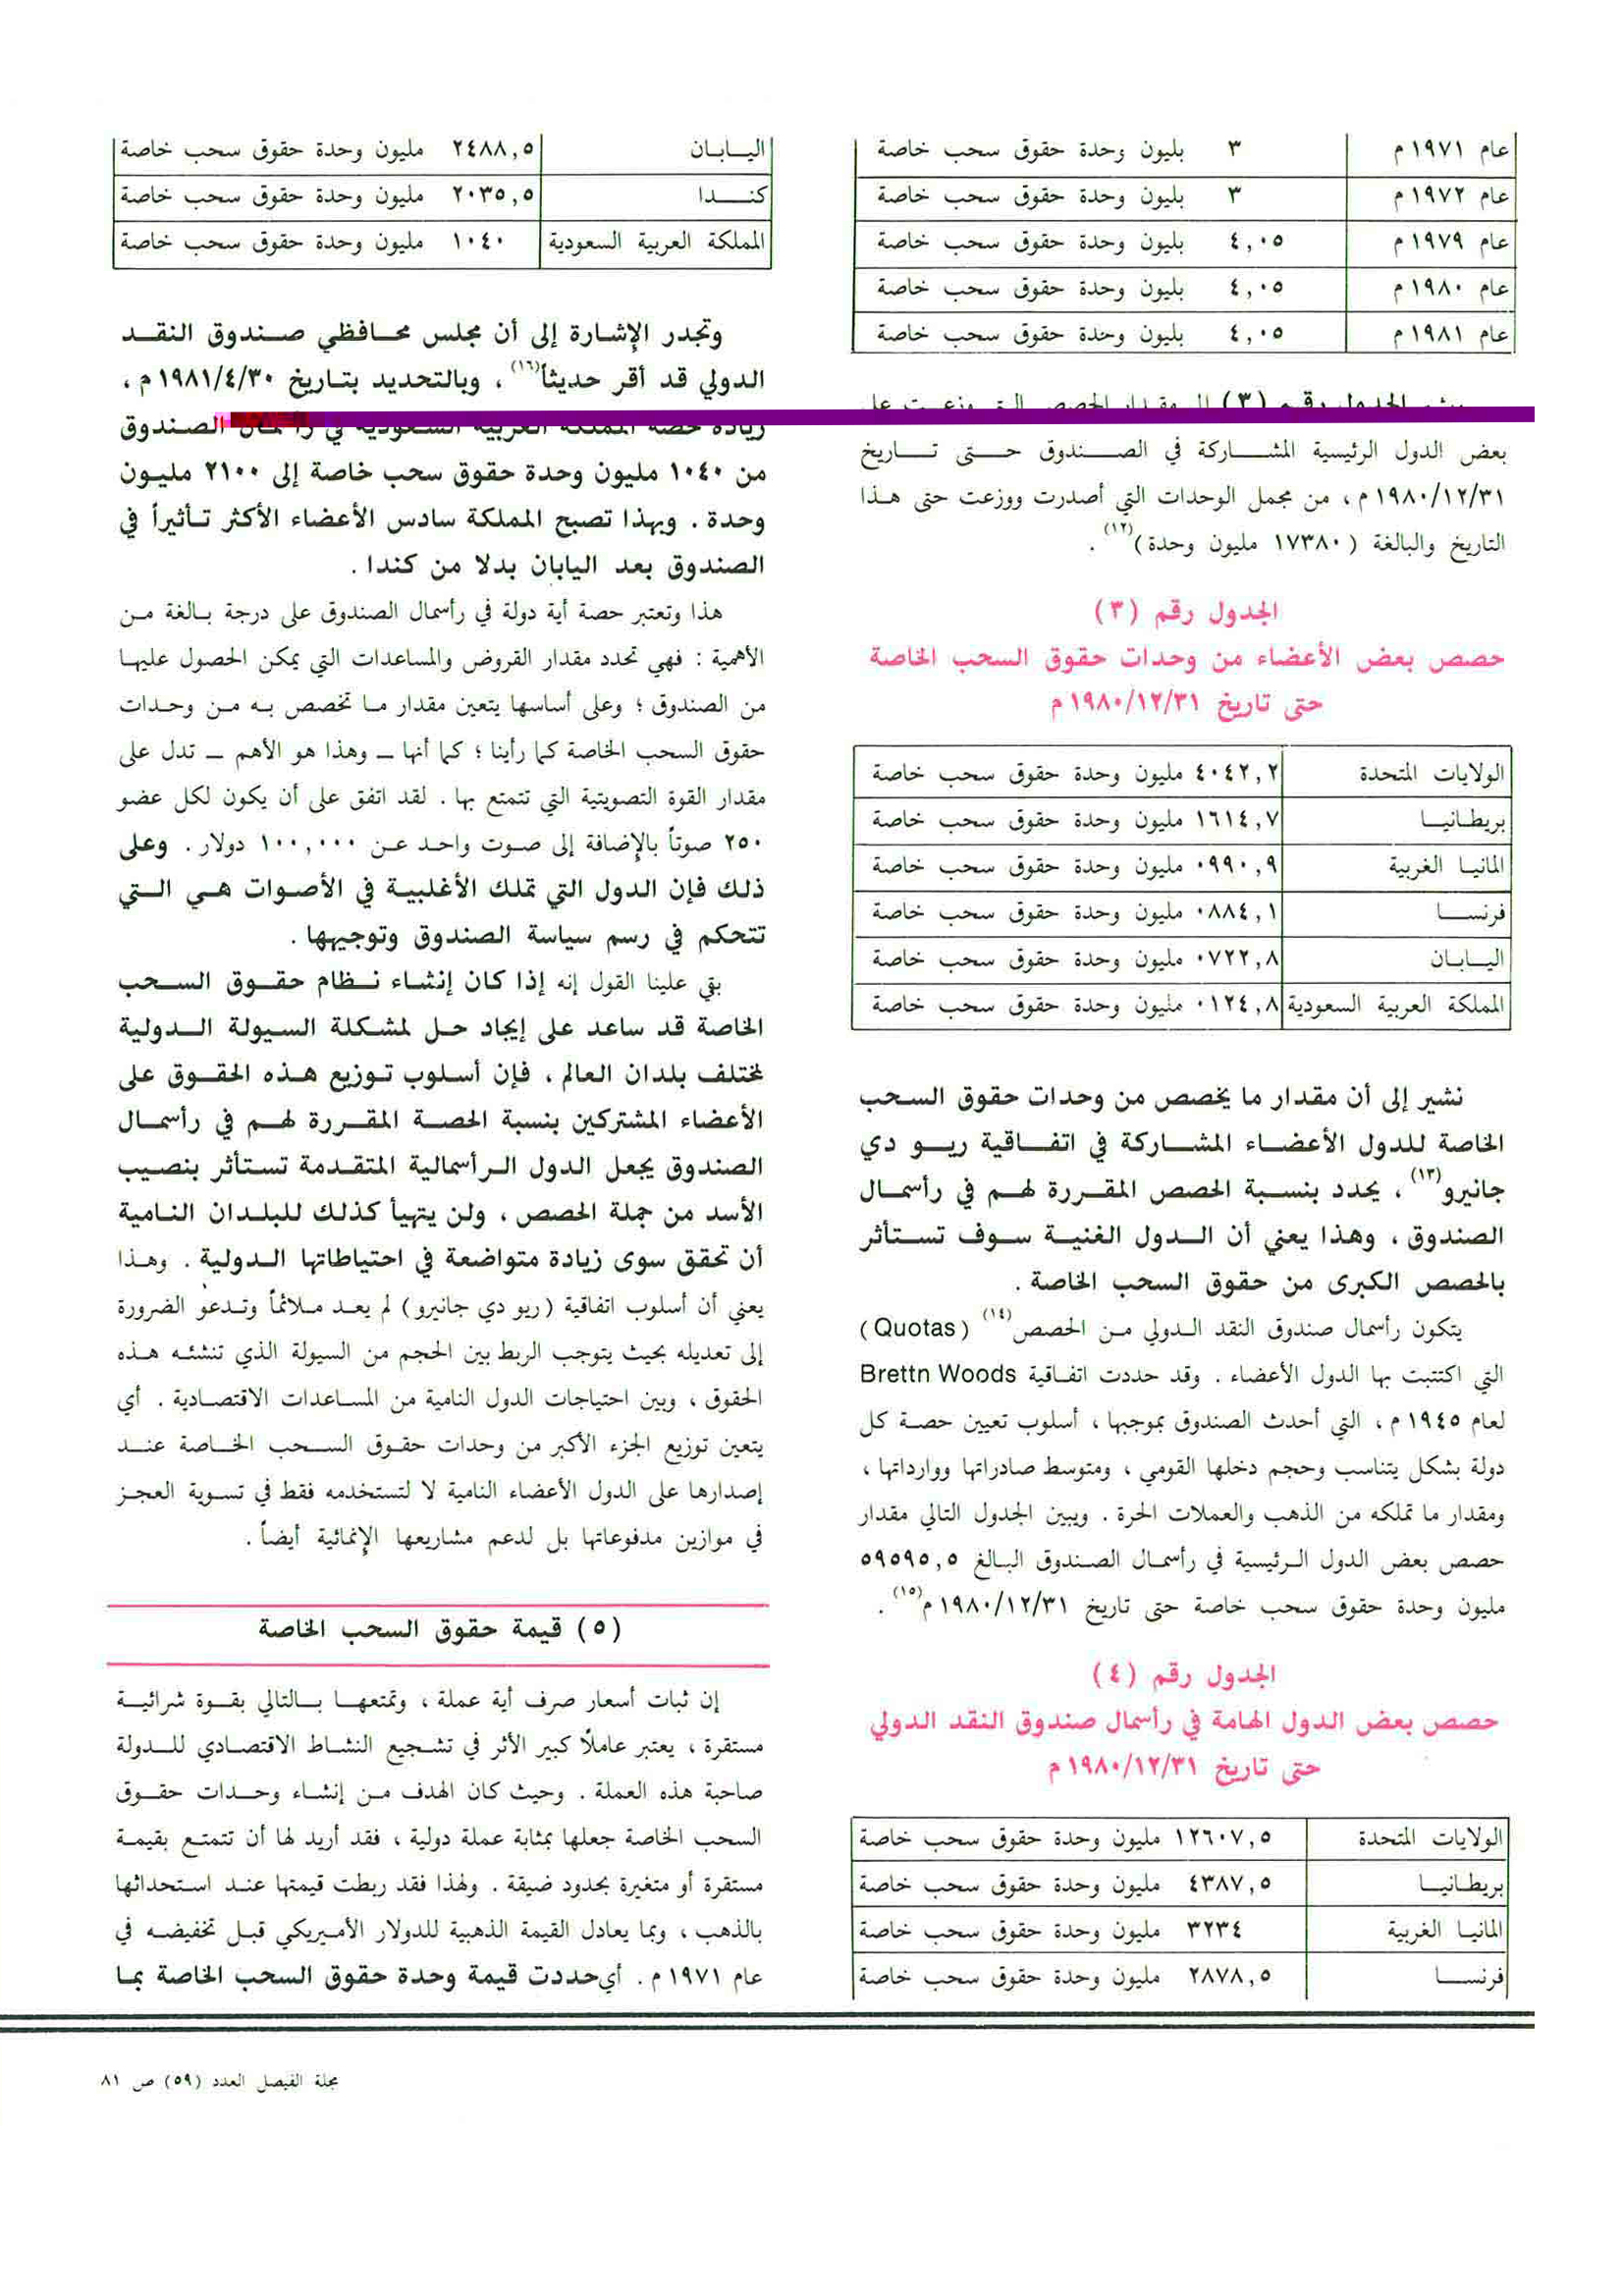 عام ١٩٧١م ٣ بليون وحدة حقوق سحب خاصة
عام ١٩٧٢م ٣ بليون وحدة حقوق سحب خاصة
عام ١٩٧٩م ٤,٠٥ بليون وحدة حقوق سحب خاصة
عام ١٩٨٠م ٤,٠٥ بليون وحدة حقوق سحب خاصة
عام ١٩٨١م ٤,٠٥ بليون وحدة حقوق سحب خاصة
الجدول رقم (٣) مقدار الحصص التي وزعت على
بعض الدول الرئيسية المشاركة في الصندوق حتى تاريخ
١٩٨٠/١٢/٣١م ، من مجمل الوحدات التي أصدرت ووزعت حتى هذا
التاريخ والبالغة (١٧٣٨٠ مليون وحدة)(١٢) .
الجدول رقم (٣)
حصص بعض الأعضاء من وحدات حقوق السحب الخاصة
حتى تاريخ ١٩٨٠/١٢/٣١م
الولايات المتحدة ٤٠٤٢,٢ مليون وحدة حقوق سحب خاصة
بريطانيا ١٦١٤,٧ مليون وحدة حقوق سحب خاصة
المانيا الغربية ٠٩٩٠,٩ مليون وحدة حقوق سحب خاصة
فرنسا ٠٨٨٤,١ مليون وحدة حقوق سحب خاصة
اليابان ٠٧٢٢,٨ مليون وحدة حقوق سحب خاصة
المملكة العربية السعودية ٠١٢٤,٨ مليون وحدة حقوق سحب خاصة
نشير إلى أن مقدار ما يخصص من وحدات حقوق السحب
الخاصة للدول الأعضاء المشاركة في اتفاقية ريو دي
جانيرو(١٣) ، يحدد بنسبة الحصص المقررة لهم في رأسمال
الصندوق ، وهذا يعني أن الدول الغنية سوف تستأثر
بالحصص الكبرى من حقوق السحب الخاصة .
يتكون رأسمال صندوق النقد الدولي من الحصص(١٤) (Quotas)
التي اكتتبت بها الدول الأعضاء . وقد حددت اتفاقية Brettn Woods
لعام ١٩٤٥م ، التي أحدث الصندوق بموجبها ، أسلوب تعيين حصة كل
دولة بشكل يتناسب وحجم دخلها القومي ، ومتوسط صادراتها ووارداتها ،
ومقدار ما تملكه من الذهب والعملات الحرة . ويبين الجدول التالي مقدار
حصص بعض الدول الرئيسية في رأسمال الصندوق البالغ ٥٩٥٩٥,٥
مليون وحدة حقوق سحب خاصة حتى تاريخ ١٩٨٠/١٢/٣١م(١٥) .
الجدول رقم (٤)
حصص بعض الدول الهامة في رأسمال صندوق النقد الدولي
حتى تاريخ ١٩٨٠/١٢/٣١م
الولايات المتحدة ١٢٦٠٧,٥ مليون وحدة حقوق سحب خاصة
بريطانيا ٤٣٨٧,٥ مليون وحدة حقوق سحب خاصة
المانيا الغربية ٣٢٣٤ مليون وحدة حقوق سحب خاصة
فرنسا ٢٨٧٨,٥ مليون وحدة حقوق سحب خاصة
اليابان ٢٤٨٨,٥ مليون وحدة حقوق سحب خاصة
كندا ٢٠٣٥,٥ مليون وحدة حقوق سحب خاصة
المملكة العربية السعودية ١٠٤٠ مليون وحدة حقوق سحب خاصة
وتجدر الإشارة إلى أن مجلس محافظي صندوق النقد
الدولي قد أقر حديثاً(١٦) ، وبالتحديد بتاريخ ١٩٨١/٤/٣٠م ،
زيادة حصة المملكة العربية السعودية في رأسمال الصندوق
من ١٠٤٠ مليون وحدة حقوق سحب خاصة إلى ٢١٠٠ مليون
وحدة . وبهذا تصبح المملكة سادس الأعضاء الأكثر تأثيراً في
الصندوق بعد اليابان بدلا من كندا .
هذا وتعتبر حصة أية دولة في رأسمال الصندوق على درجة بالغة من
الأهمية : فهي تحدد مقدار القروض والمساعدات التي يمكن الحصول عليها
من الصندوق ؛ وعلى أساسها يتعين مقدار ما تخصص به من وحدات
حقوق السحب الخاصة كما رأينا ؛ كما أنها ــ وهذا هو الأهم ــ تدل على
مقدار القوة التصويتية التي تتمتع بها . لقد اتفق على أن يكون لكل عضو
٢٥٠ صوتاً بالإضافة إلى صوت واحد عن ١٠٠,٠٠٠ دولار . وعلى
ذلك فإن الدول التي تملك الأغلبية في الأصوات هي التي
تتحكم في رسم سياسة الصندوق وتوجيهها .
بقي علينا القول إنه إذا كان إنشاء نظام حقوق السحب
الخاصة قد ساعد على إيجاد حل لمشكلة السيولة الدولية
لمختلف بلدان العالم ، فإن أسلوب توزيع هذه الحقوق على
الأعضاء المشتركين بنسبة الحصة المقررة لهم في رأسمال
الصندوق يجعل الدول الرأسمالية المتقدمة تستأثر بنصيب
الأسد من جملة الحصص ، ولن يتهيأ كذلك للبلدان النامية
أن تحقق سوى زيادة متواضعة في احتياطاتها الدولية . وهذا
يعني أن أسلوب اتفاقية (ريو دي جانيرو) لم يعد ملائماً وتدعو الضرورة
إلى تعديله بحيث يتوجب الربط بين الحجم من السيولة الذي تنشئه هذه
الحقوق ، وبين احتياجات الدول النامية من المساعدات الاقتصادية . أي
يتعين توزيع الجزء الأكبر من وحدات حقوق السحب الخاصة عند
إصدارها على الدول الأعضاء النامية لا لتستخدمه فقط في تسوية العجز
في موازين مدفوعاتها بل لدعم مشاريعها الإنمائية أيضاً .
(٥) قيمة حقوق السحب الخاصة
إن ثبات أسعار صرف أية عملة ، وتمتعها بالتالي بقوة شرائية
مستقرة ، يعتبر عاملاً كبير الأثر في تشجيع النشاط الاقتصادي للدولة
صاحبة هذه العملة . وحيث كان الهدف من إنشاء وحدات حقوق
السحب الخاصة جعلها بمثابة عملة دولية ، فقد أريد لها أن تتمتع بقيمة
مستقرة أو متغيرة بحدود ضيقة . ولهذا فقد ربطت قيمتها عند استحداثها
بالذهب ، وبما يعادل القيمة الذهبية للدولار الأميريكي قبل تخفيضه في
عام ١٩٧١م . أي حددت قيمة وحدة حقوق السحب الخاصة بما
مجلة الفيصل العدد (٥٩) ص ٨١